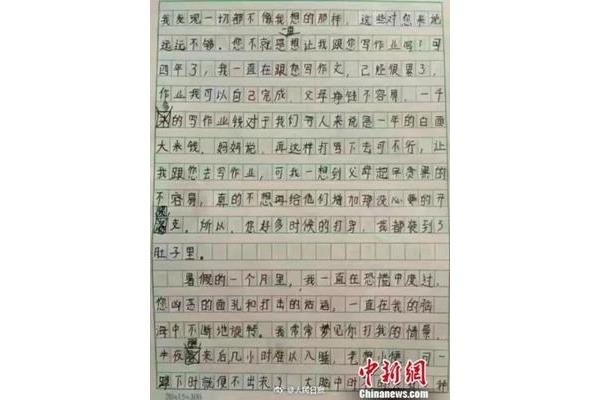 我发现一切都不像我想的那样,这些对您来说
远远不够。您不就是想让我跟您写作业吗?可
一直
四年了,我一直在跟您写作文,已经很累了,
作业我可以自己完成,父母挣钱不容易,一千
多的写作业钱对于我们穷人来说是一年的白面
大米钱。妈妈说,再这样打骂下去可不行,让
我跟您去写作业,可我一想到父母起早贪黑的
不容易,真的不想再给他们增加那没必要的开
支。所以,您好多时候的打骂,我都装到了
肚子里。
暑假的一个月里,我一直在恐惧中度过,
您凶恶的面孔和打击的话语,一直在我的脑
海中不断地旋转。我常常梦见你打我的情景,
半夜醒来后几小时难以入睡,老想小便,可一
蹲下时就便不出来了
@人民日报
中新网
Chinanews.com